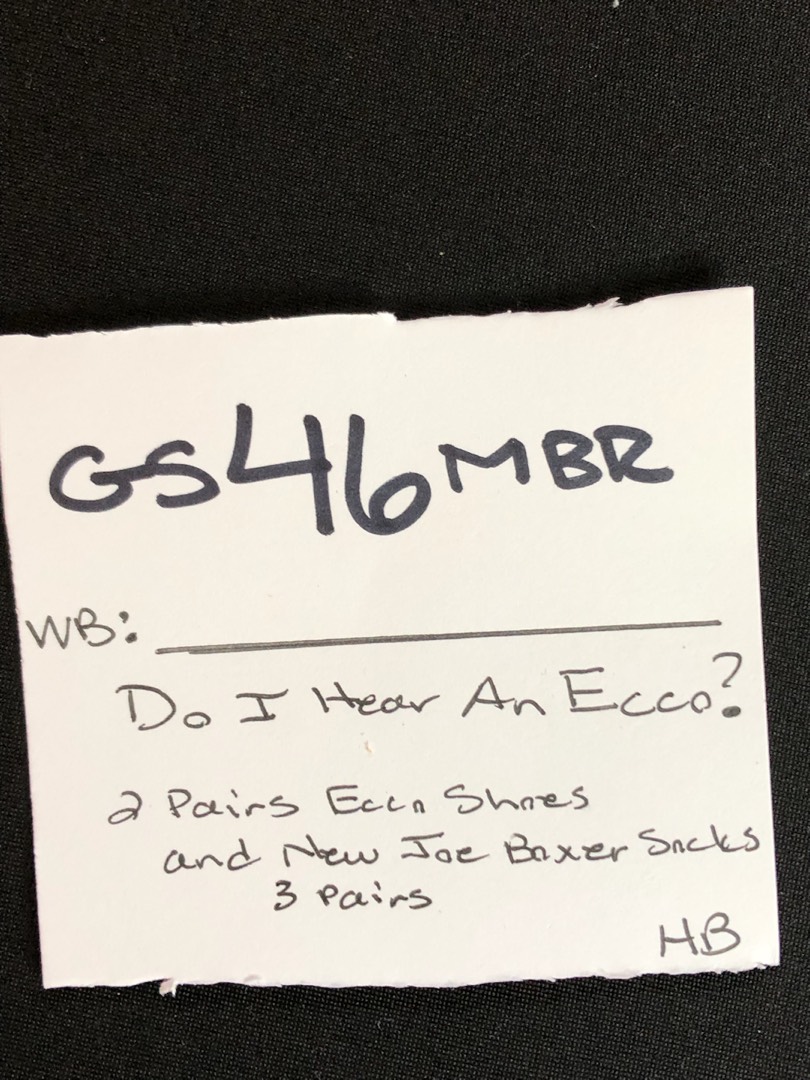 GS46MBR
WB:
Do I Hear An Ecco?
2 Pairs Ecco Shoes
and New Joe Boxer Socks
3 Pairs
HB